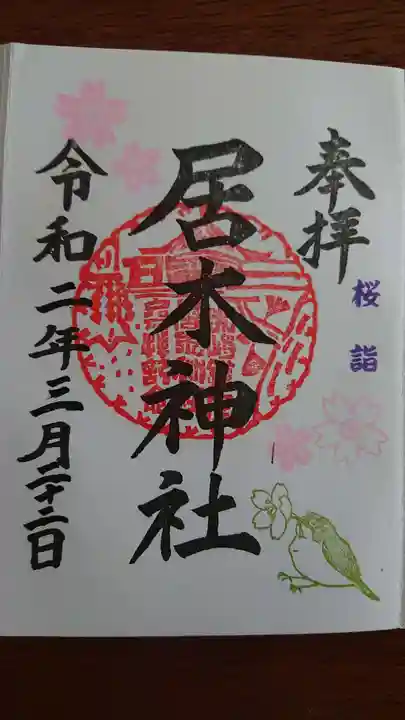 奉拝
桜詣
居木神社
令和二年三月二十二日